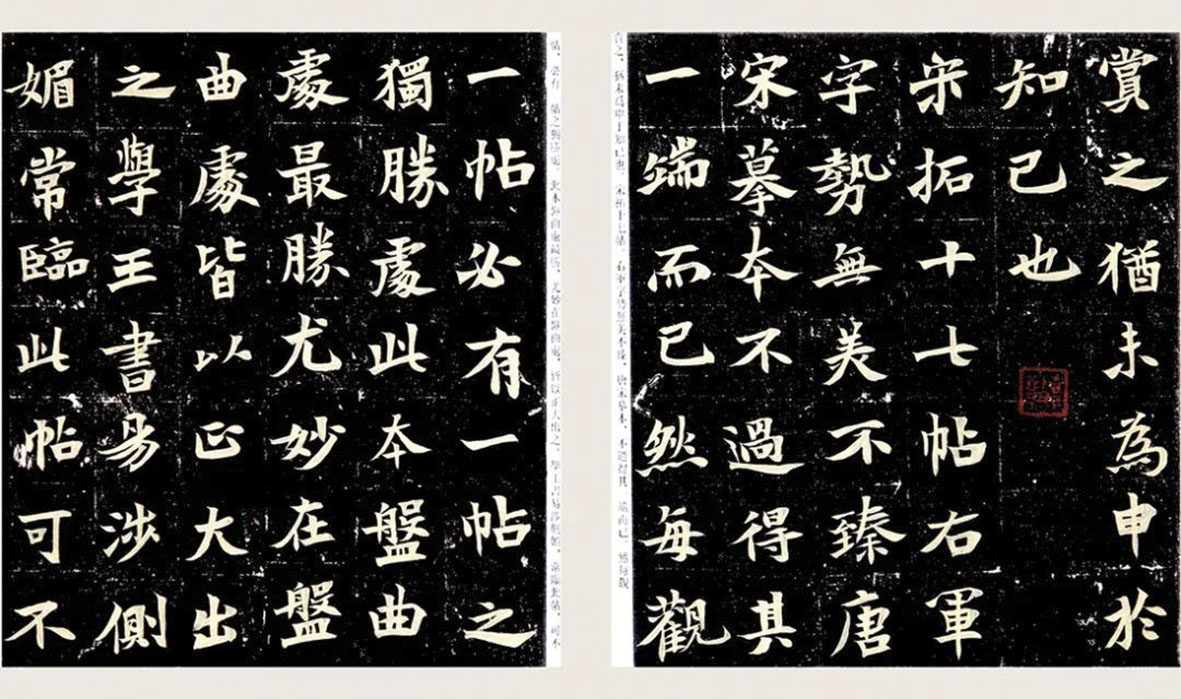 賞之猶未為申於
知己也
宋拓十七帖右軍
字勢無美不臻唐
宋摹本不過得其
一端而已然每觀
一帖必有一帖之
獨勝處此本盤曲
處最勝尤妙在盤
曲處皆以正大出
之學王書易涉側
媚常臨此帖可不